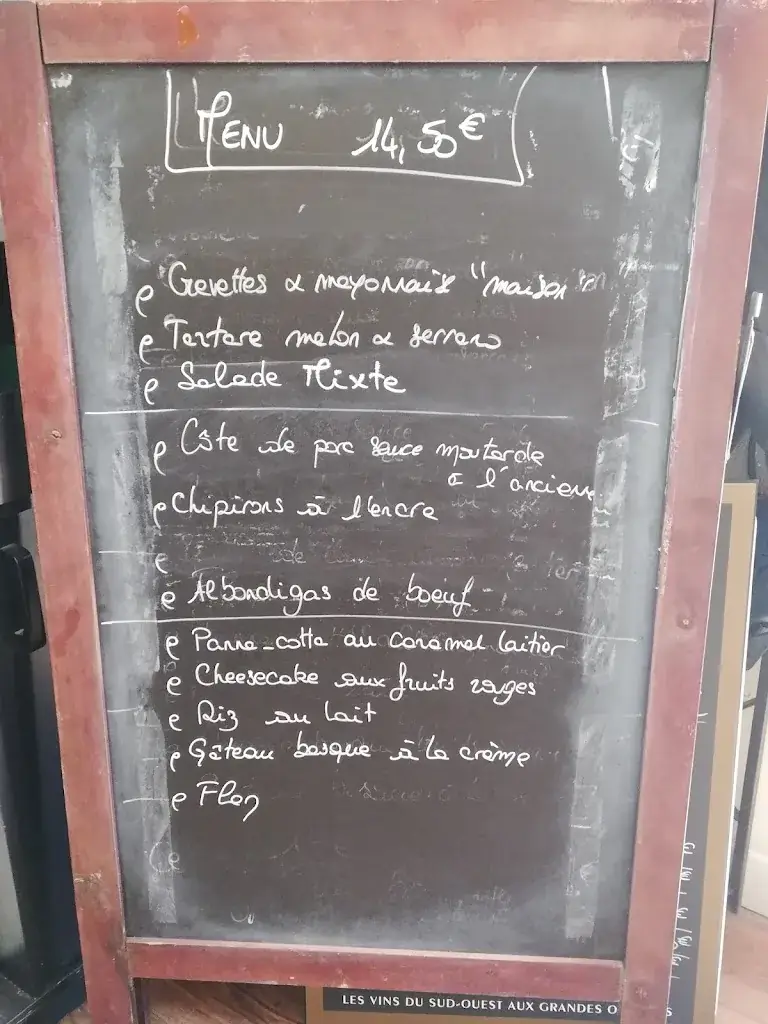 MENU 14,50€
Crevettes & mayonnaise "maison"
Tartare melon & serrano
Salade Mixte
Côte de porc sauce moutarde
à l'ancienne
Chipirons à l'encre
Albondigas de boeuf
Panna-cotta au caramel laitier
Cheesecake aux fruits rouges
Riz au lait
Gâteau basque à la crème
Flan
LES VINS DU SUD-OUEST AUX GRANDES